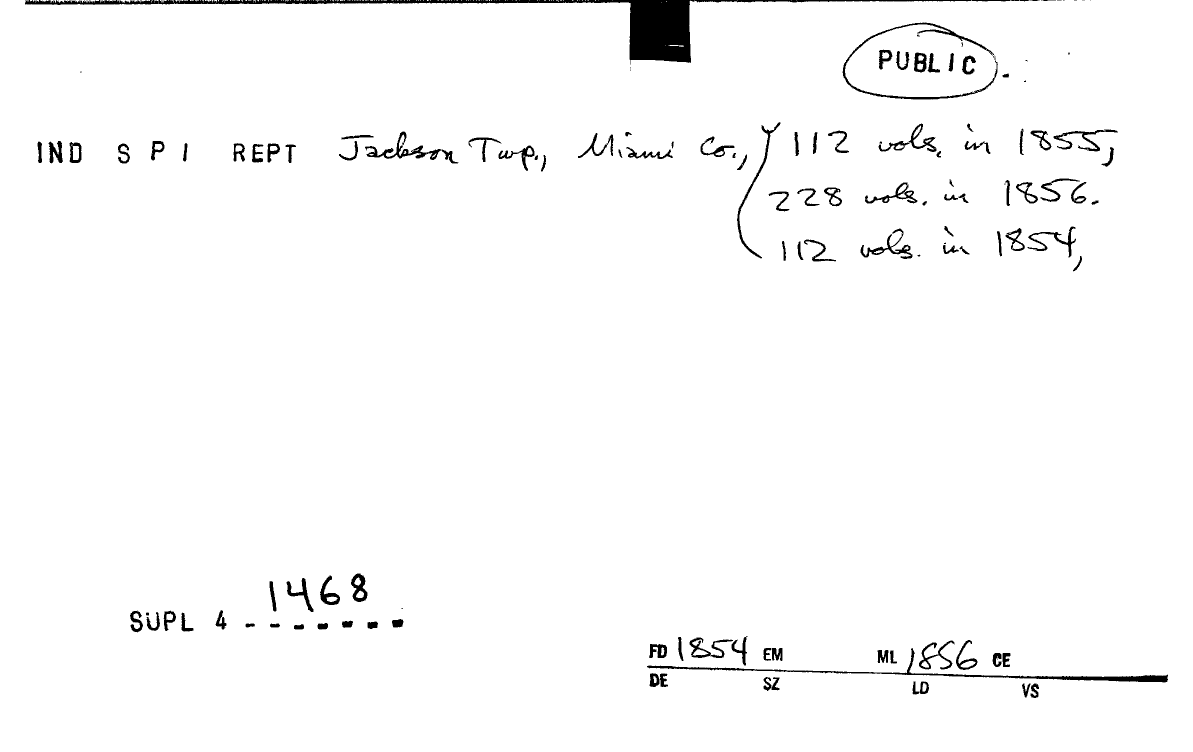 PUBLIC.
IND S P I REPT Jackson Twp., Miami Co., 112 vols. in 1855,
228 vols. in 1856.
112 vols. in 1854,
1468
SUPL 4 - - - - - - -
FD 1854 EM ML 1856 CE
DE SZ LD VS